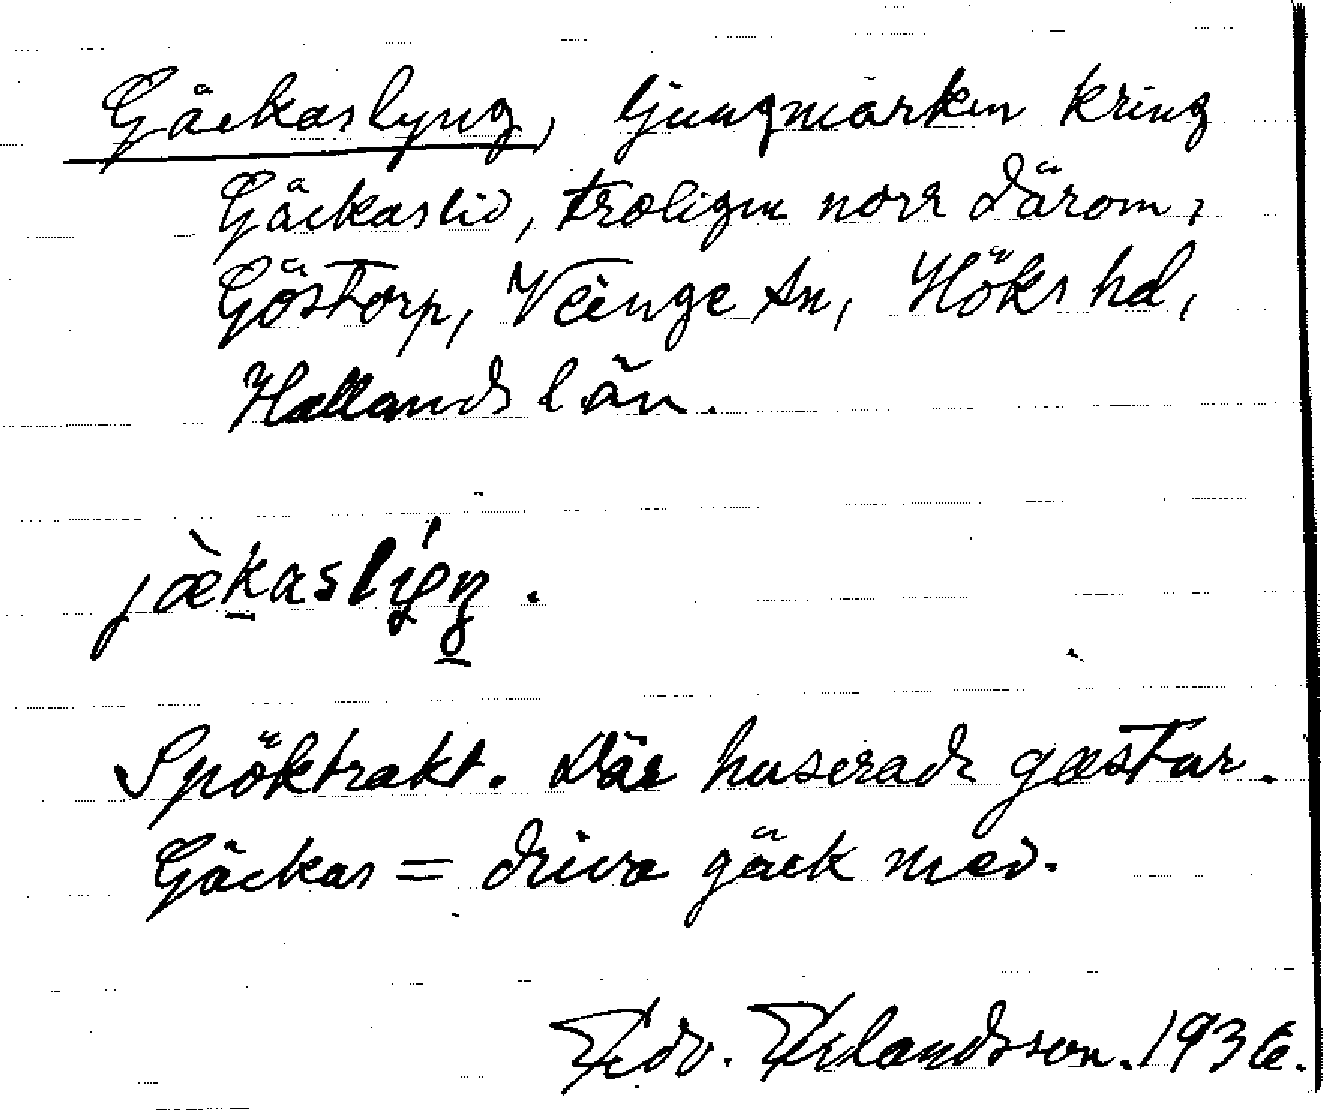 Gäckaslyng, ljungmarken kring
Gäckaslid, troligen norr därom,
Göstorp, Veinge sn, Höks hd,
Hallands län.
jæ̀kaslýŋ.
Spöktrakt. Där huserade gastar.
Gäckas = driva gäck med.
Edv. Erlandsson. 1936.